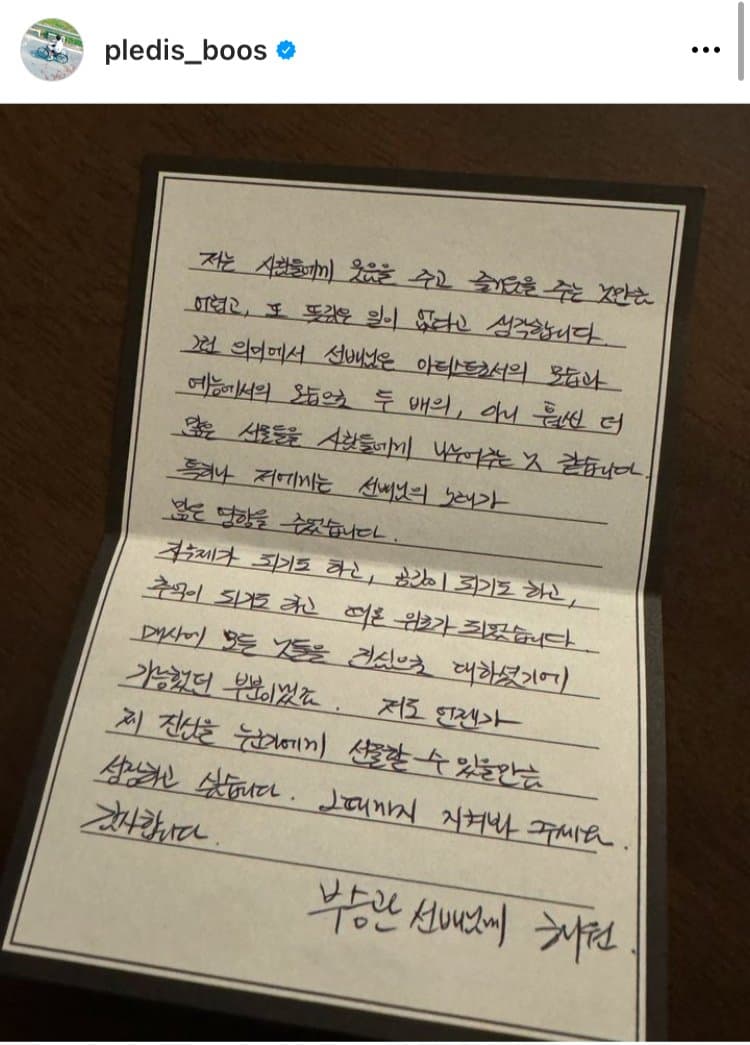 pledis_boos
저는 사람들에게 웃음을 주고 즐거움을 주는 것만큼
어렵고, 또 뜻깊은 일이 없다고 생각합니다.
그런 의미에서 선배님은 아티스트로서의 모습과
예능에서의 모습으로 두 배의, 아니 훨씬 더
많은 선물들을 사람들에게 나누어주는 것 같습니다.
특히나 저에게는 선배님의 노래가
많은 영향을 주었습니다.
되기도 하고, 공감이 되기도 하고,
추억이 되기도 하고 때론 위로가 되었습니다.
매사에 모든 것들을 진심으로 대하셨기에
가능했던 부분이겠죠. 저도 언젠가
제 진심을 누군가에게 선물할 수 있을만큼
성장하고 싶습니다. 그때까지 지켜봐 주세요.
감사합니다.
부승관 선배님께